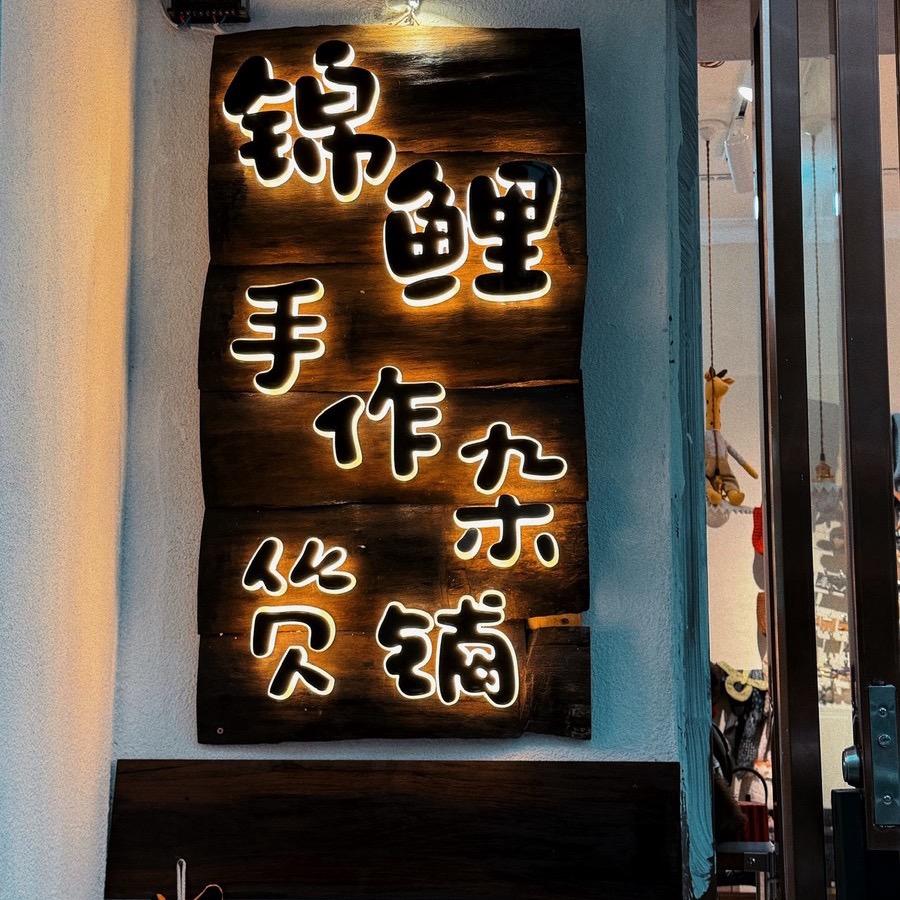 锦鲤
手作
杂
货铺